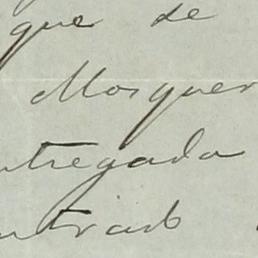 que de
Mosquer
ntregada